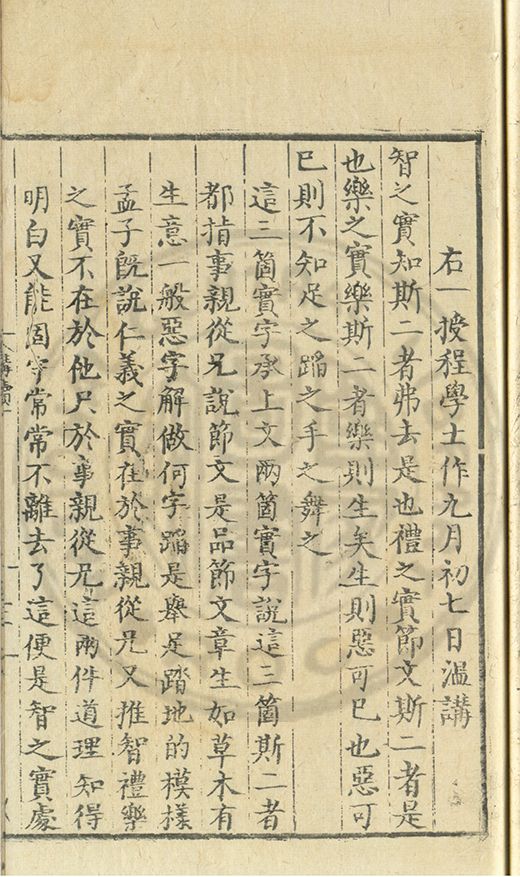 右一授程學士作九月初七日溫講
智之實知斯二者弗去是也禮之實節文斯二者是
也樂之實樂斯二者樂則生矣生則惡可已也惡可
已則不知足之蹈之手之舞之
這三箇實字承上文兩箇實字說這三箇斯二者
都指事親從兄說節文是品節文章生如草木有
生意一般惡字解做何字蹈是舉足踏地的模樣
孟子旣說仁義之實在於事親從兄又推智禮樂
之實不在於他只於事親從兄這兩件道理知得
明白又能固守常常不離去了這便是智之實處